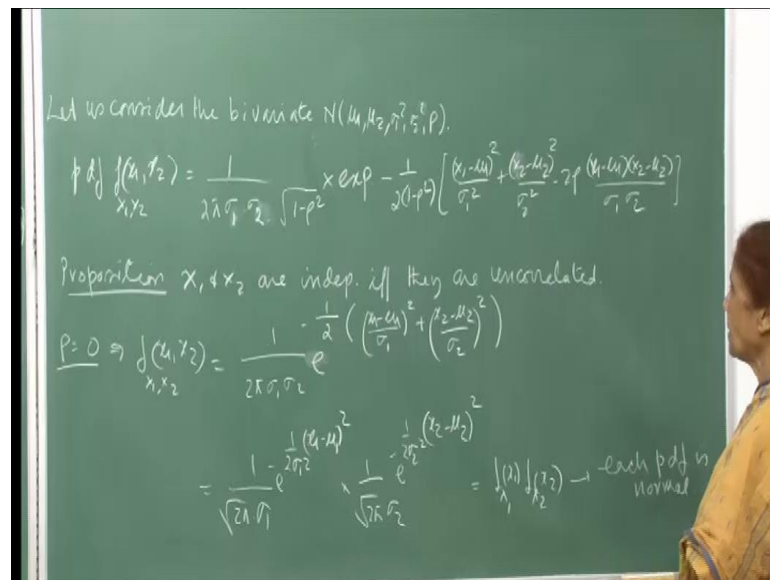 Let us consider the bivariate N(μ₁, μ₂, σ₁², σ₂², ρ).
pdf f_{X₁X₂}(x₁, x₂) = 1/(2π σ₁ σ₂ √(1-ρ²)) × exp - 1/(2(1-ρ²)) [ (x₁-μ₁)²/σ₁² + (x₂-μ₂)²/σ₂² - 2ρ (x₁-μ₁)(x₂-μ₂)/(σ₁ σ₂) ]
Proposition X₁ & X₂ are indep. iff they are uncorrelated.
ρ=0 ⇒ f_{X₁X₂}(x₁, x₂) = 1/(2π σ₁ σ₂) e^{-1/2 ( ((x₁-μ₁)/σ₁)² + ((x₂-μ₂)/σ₂)² )}
= 1/(√2π σ₁) e^{-1/(2σ₁²) (x₁-μ₁)²} × 1/(√2π σ₂) e^{-1/(2σ₂²) (x₂-μ₂)²} = f_{X₁}(x₁) f_{X₂}(x₂) → each pdf is
normal